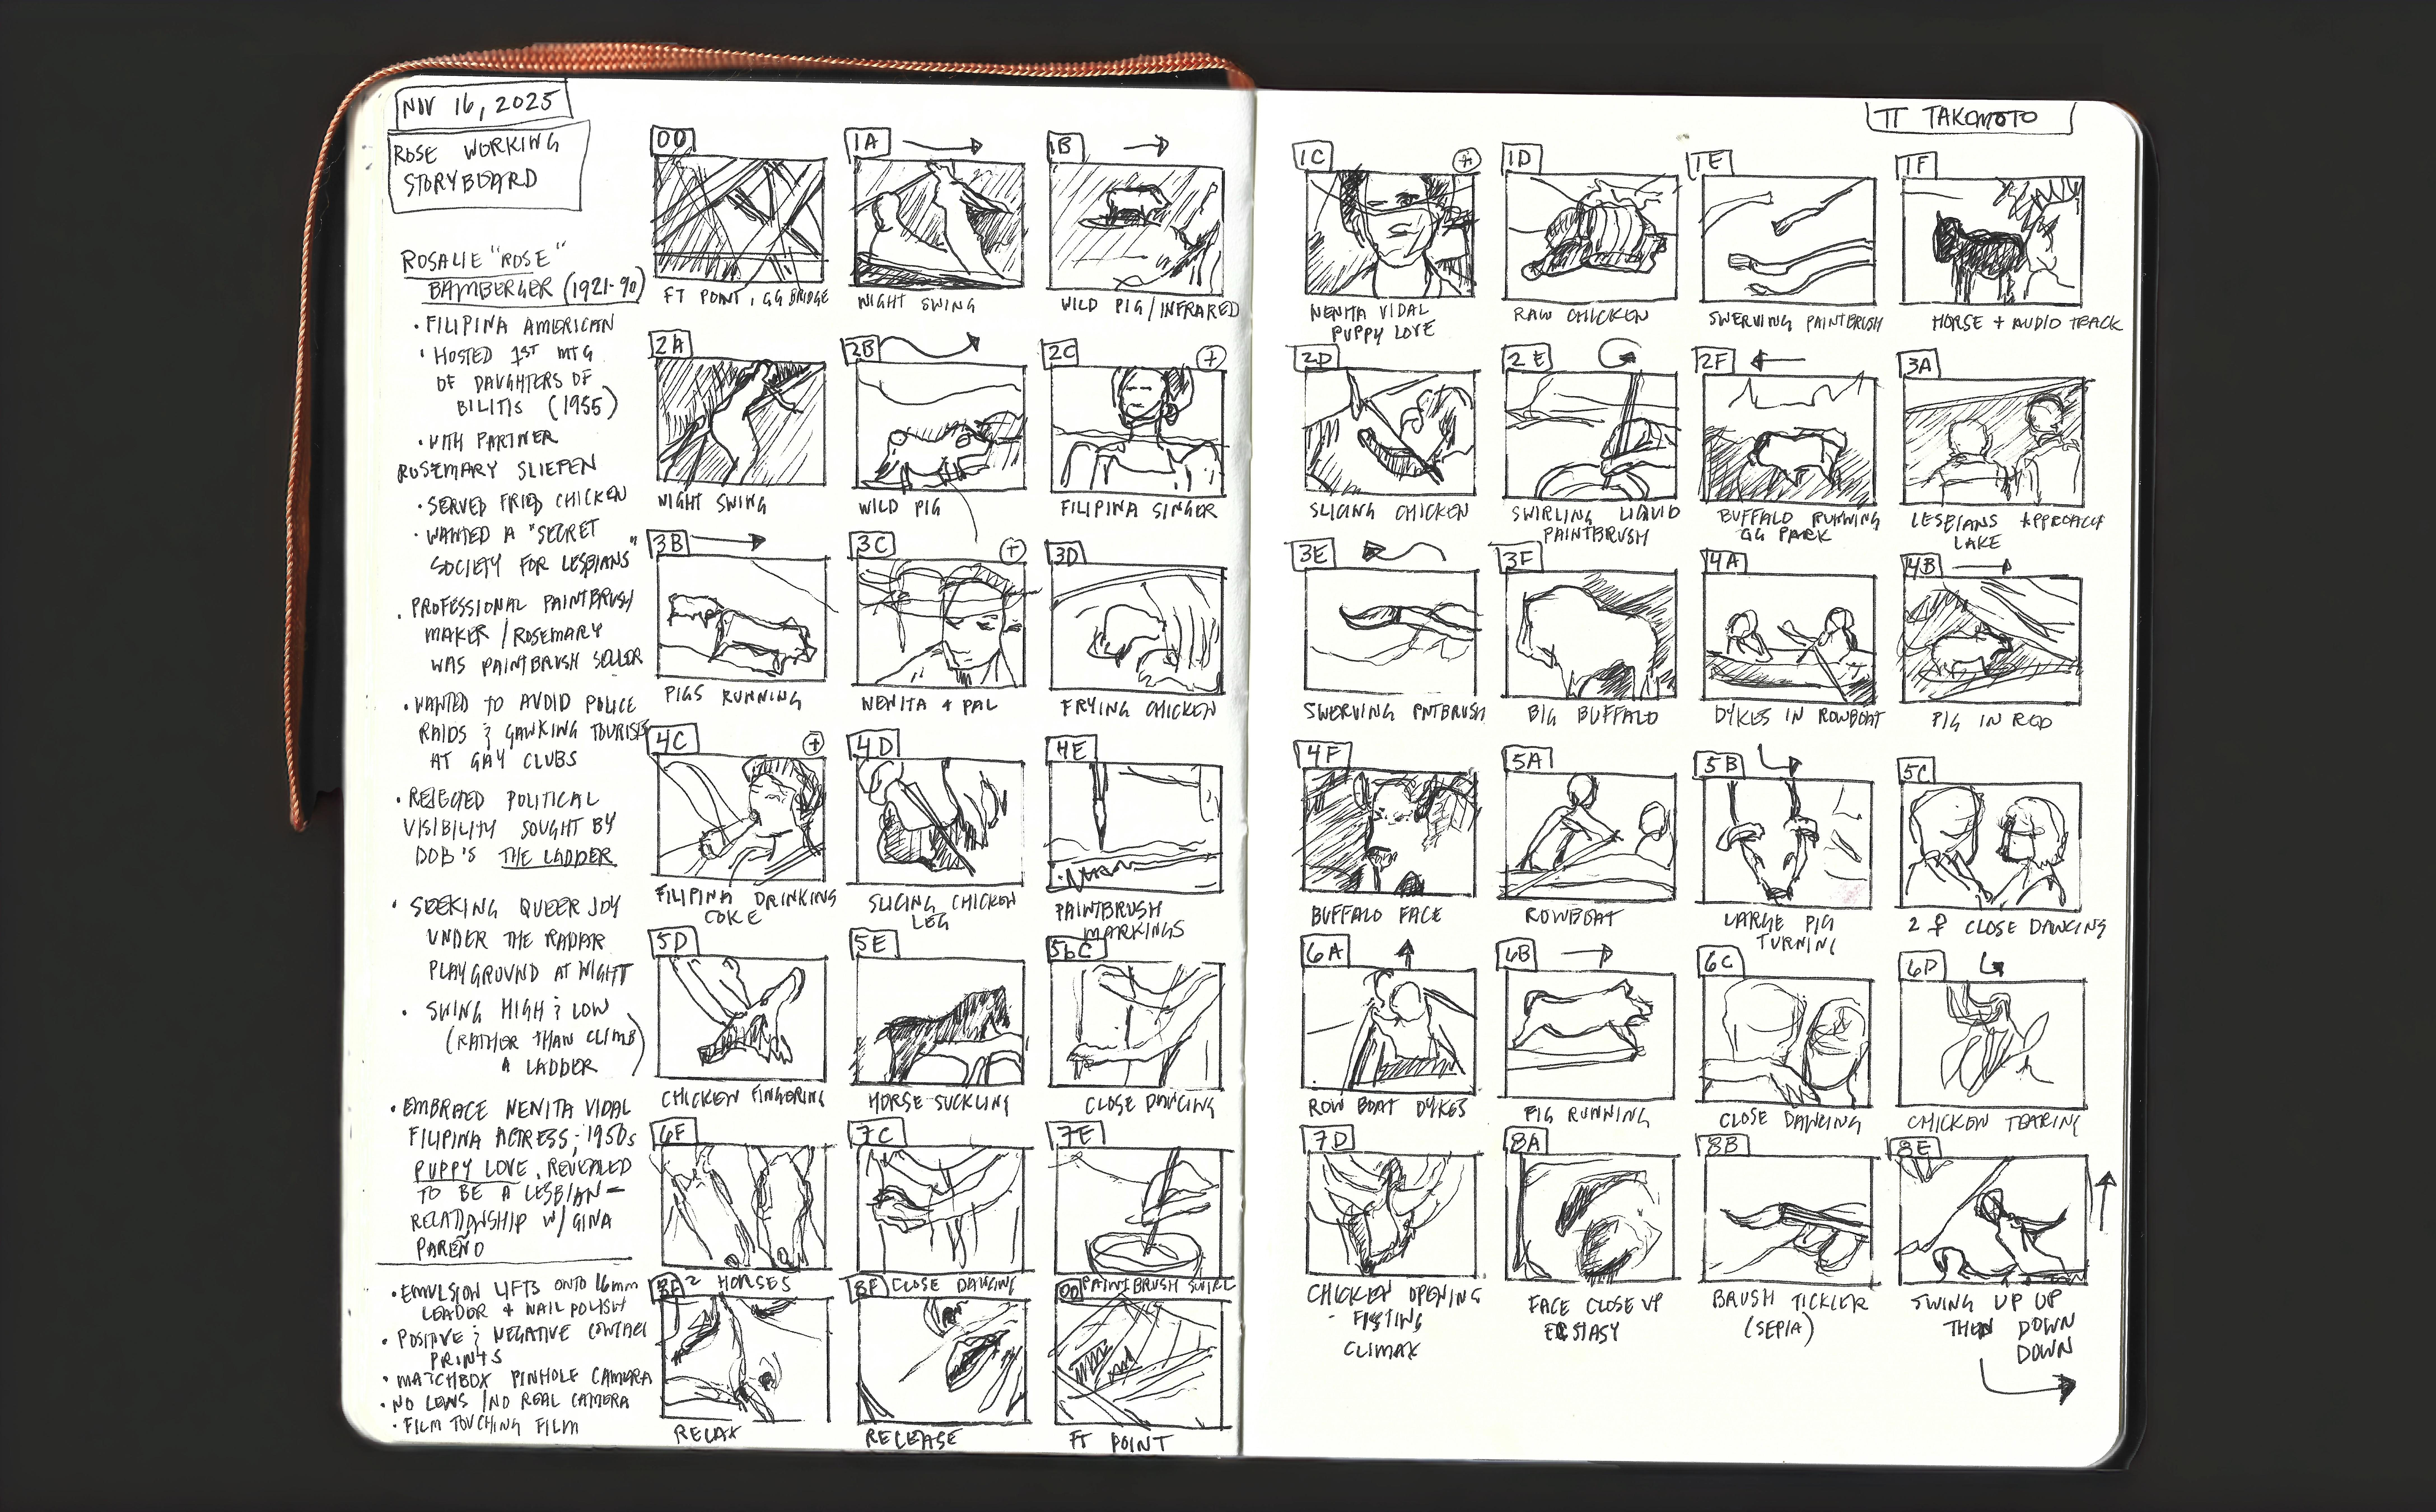 NOV 16, 2025
ROSE WORKING
STORYBOARD
ROSALIE "ROSE"
BAMBERGER (1921-90)
• FILIPINA AMERICAN
• HOSTED 1ST MTG
OF DAUGHTERS OF
BILITIS (1955)
• WITH PARTNER
ROSEMARY SLIEPEN
• SERVED FRIED CHICKEN
• WANTED A "SECRET
SOCIETY FOR LESBIANS"
• PROFESSIONAL PAINTBRUSH
MAKER / ROSEMARY
WAS PAINTBRUSH SELLER
• WANTED TO AVOID POLICE
RAIDS & GAWKING TOURISTS
AT GAY CLUBS
• REJECTED POLITICAL
VISIBILITY SOUGHT BY
DOB'S THE LADDER
• SEEKING QUEER JOY
UNDER THE RADAR
PLAYGROUND AT NIGHT
• SWING HIGH & LOW
(RATHER THAN CLIMB
A LADDER)
• EMBRACE NENITA VIDAL
FILIPINA ACTRESS; 1950s
PUPPY LOVE. REVEALED
TO BE A LESBIAN –
RELATIONSHIP W/ GINA
PAREÑO
• EMULSION LIFTS ONTO 16mm
LEADER + NAIL POLISH
• POSITIVE & NEGATIVE CONTACT
PRINTS
• MATCHBOX PINHOLE CAMERA
• NO LENS / NO REAL CAMERA
• FILM TOUCHING FILM
00
1A
1B
FT POINT, GG BRIDGE
NIGHT SWING
WILD PIG / INFRARED
2A
2B
2C
NIGHT SWING
WILD PIG
FILIPINA SINGER
3B
3C
3D
PIGS RUNNING
NENITA + PAL
FRYING CHICKEN
4C
4D
4E
FILIPINA DRINKING
COKE
SLICING CHICKEN
LEG
PAINTBRUSH
MARKINGS
5D
5E
5bC
CHICKEN FINGERING
HORSE SUCKLING
CLOSE DANCING
6F
7C
7E
2 HORSES
CLOSE DANCING
PAINTBRUSH SWIRL
8F
00
RELAX
RELEASE
FT POINT
TT TAKOMOTO
1C
1D
1E
1F
NENITA VIDAL
PUPPY LOVE
RAW CHICKEN
SWERVING PAINTBRUSH
HORSE + AUDIO TRACK
2D
2E
2F
3A
SLICING CHICKEN
SWIRLING LIQUID
PAINTBRUSH
BUFFALO RUNNING
GG PARK
LESBIANS APPROACH
LAKE
3E
3F
4A
4B
SWERVING PNTBRUSH
BIG BUFFALO
DYKES IN ROWBOAT
PIG IN RED
4F
5A
5B
5C
BUFFALO FACE
ROWBOAT
LARGE PIG
TURNING
2 ♀ CLOSE DANCING
6A
6B
6C
6D
ROW BOAT DYKES
PIG RUNNING
CLOSE DANCING
CHICKEN TEARING
7D
8A
8B
8E
CHICKEN OPENING
FISTING
CLIMAX
FACE CLOSE UP
ECSTASY
BRUSH TICKLER
(SEPIA)
SWING UP UP
THEN DOWN
DOWN